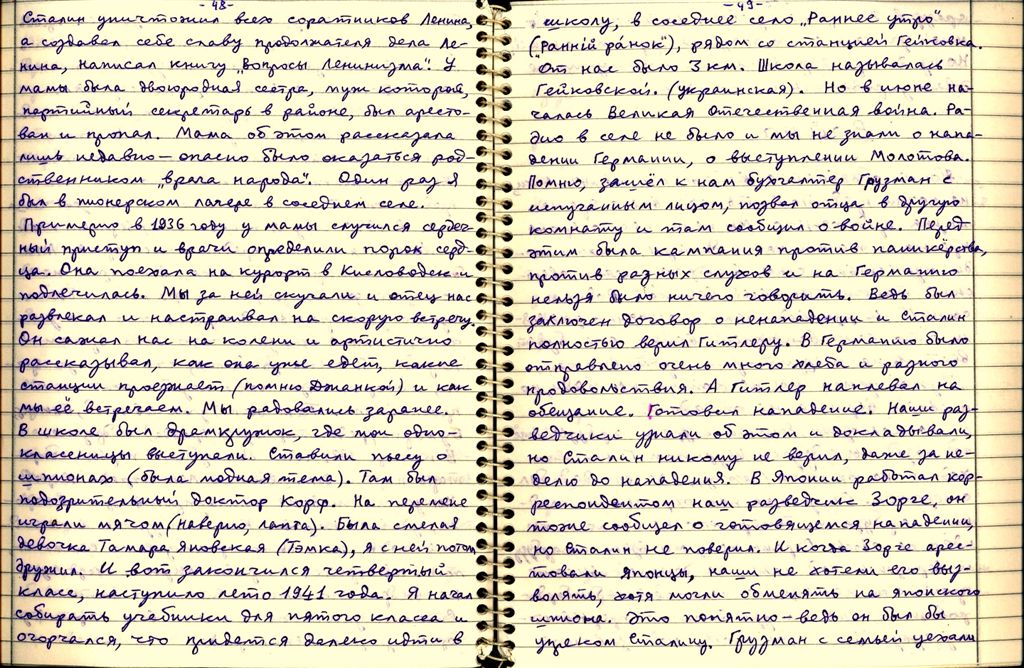 -48-
Сталин уничтожил всех соратников Ленина,
а создавал себе славу продолжателя дела Ле-
нина, написал книгу „Вопросы Ленинизма". У
мамы была двоюродная сестра, муж которой,
партийный секретарь в районе, был аресто-
ван и пропал. Мама об этом рассказала
лишь недавно – опасно было оказаться род-
ственником „врага народа". Один раз я
был в пионерском лагере в соседнем селе.
Примерно в 1936 году у мамы случился сердеч-
ный приступ и врачи определили порок серд-
ца. Она поехала на курорт в Кисловодск и
подлечилась. Мы за ней скучали и отец нас
развлекал и настраивал на скорую встречу.
Он сажал нас на колени и артистично
рассказывал, как она уже едет, какие
станции проезжает (помню Джанкой) и как
мы её встречаем. Мы радовались заранее.
В школе был драмкружок, где мои одно-
классницы выступали. Ставили пьесу о
шпионах (была модная тема). Там был
подозрительный доктор Корф. На перемене
играли мячом (наверно, лапта). Была смелая
девочка Тамара Яновская (Тэмка), я с ней потом
дружил. И вот закончился четвертый
класс, наступило лето 1941 года. Я начал
собирать учебники для пятого класса и
огорчался, что придется далеко идти в
-49-
школу, в соседнее село „Раннее утро"
(„Ранній ра́нок"), рядом со станцией Гейковка.
От нас было 3 км. Школа называлась
Гейковской. (украинская). Но в июне на-
чалась Великая Отечественная война. Ра-
дио в селе не было и мы не знали о напа-
дении Германии, о выступлении Молотова.
Помню, зашёл к нам бухгалтер Грузман с
испуганным лицом, позвал отца в другую
комнату и там сообщил о войне. Перед
этим была кампания против паникёрства,
против разных слухов и на Германию
нельзя было ничего говорить. Ведь был
заключен договор о ненападении и Сталин
полностью верил Гитлеру. В Германию было
отправлено очень много хлеба и разного
продовольствия. А Гитлер наплевал на
обещание. Готовил нападение. Наши раз-
ведчики узнали об этом и докладывали,
но Сталин никому не верил, даже за не-
делю до нападения. В Японии работал кор-
респондентом наш разведчик Зорге, он
тоже сообщел о готовящемся нападении,
но Сталин не поверил. И когда Зорге арес-
товали японцы, наши не хотели его выз-
волять, хотя могли обменять на японского
шпиона. Это понятно – ведь он был бы
упреком Сталину. Грузман с семьей уехали